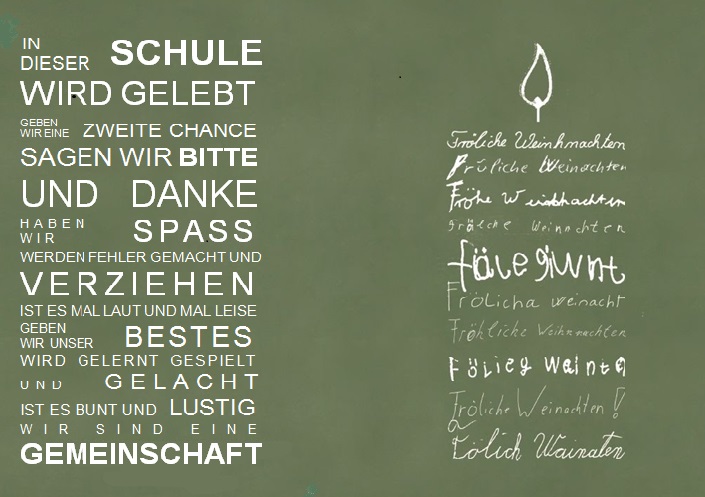 IN
DIESER SCHULE
WIRD GELEBT
GEBEN
WIR EINE ZWEITE CHANCE
SAGEN WIR BITTE
UND DANKE
HABEN
WIR SPASS
WERDEN FEHLER GEMACHT UND
VERZIEHEN
IST ES MAL LAUT UND MAL LEISE
GEBEN
WIR UNSER BESTES
WIRD GELERNT GESPIELT
UND GELACHT
IST ES BUNT UND LUSTIG
WIR SIND EINE
GEMEINSCHAFT
Fröliche Weinhnachten
Früliche Weinachten
Fröhe
Weinnchten
fäle giwnt
Frölicha weinacht
Fröhliche Weihnnachten
Fölieg wainta
Fröliche Weinachten!
Lölich Wainaten